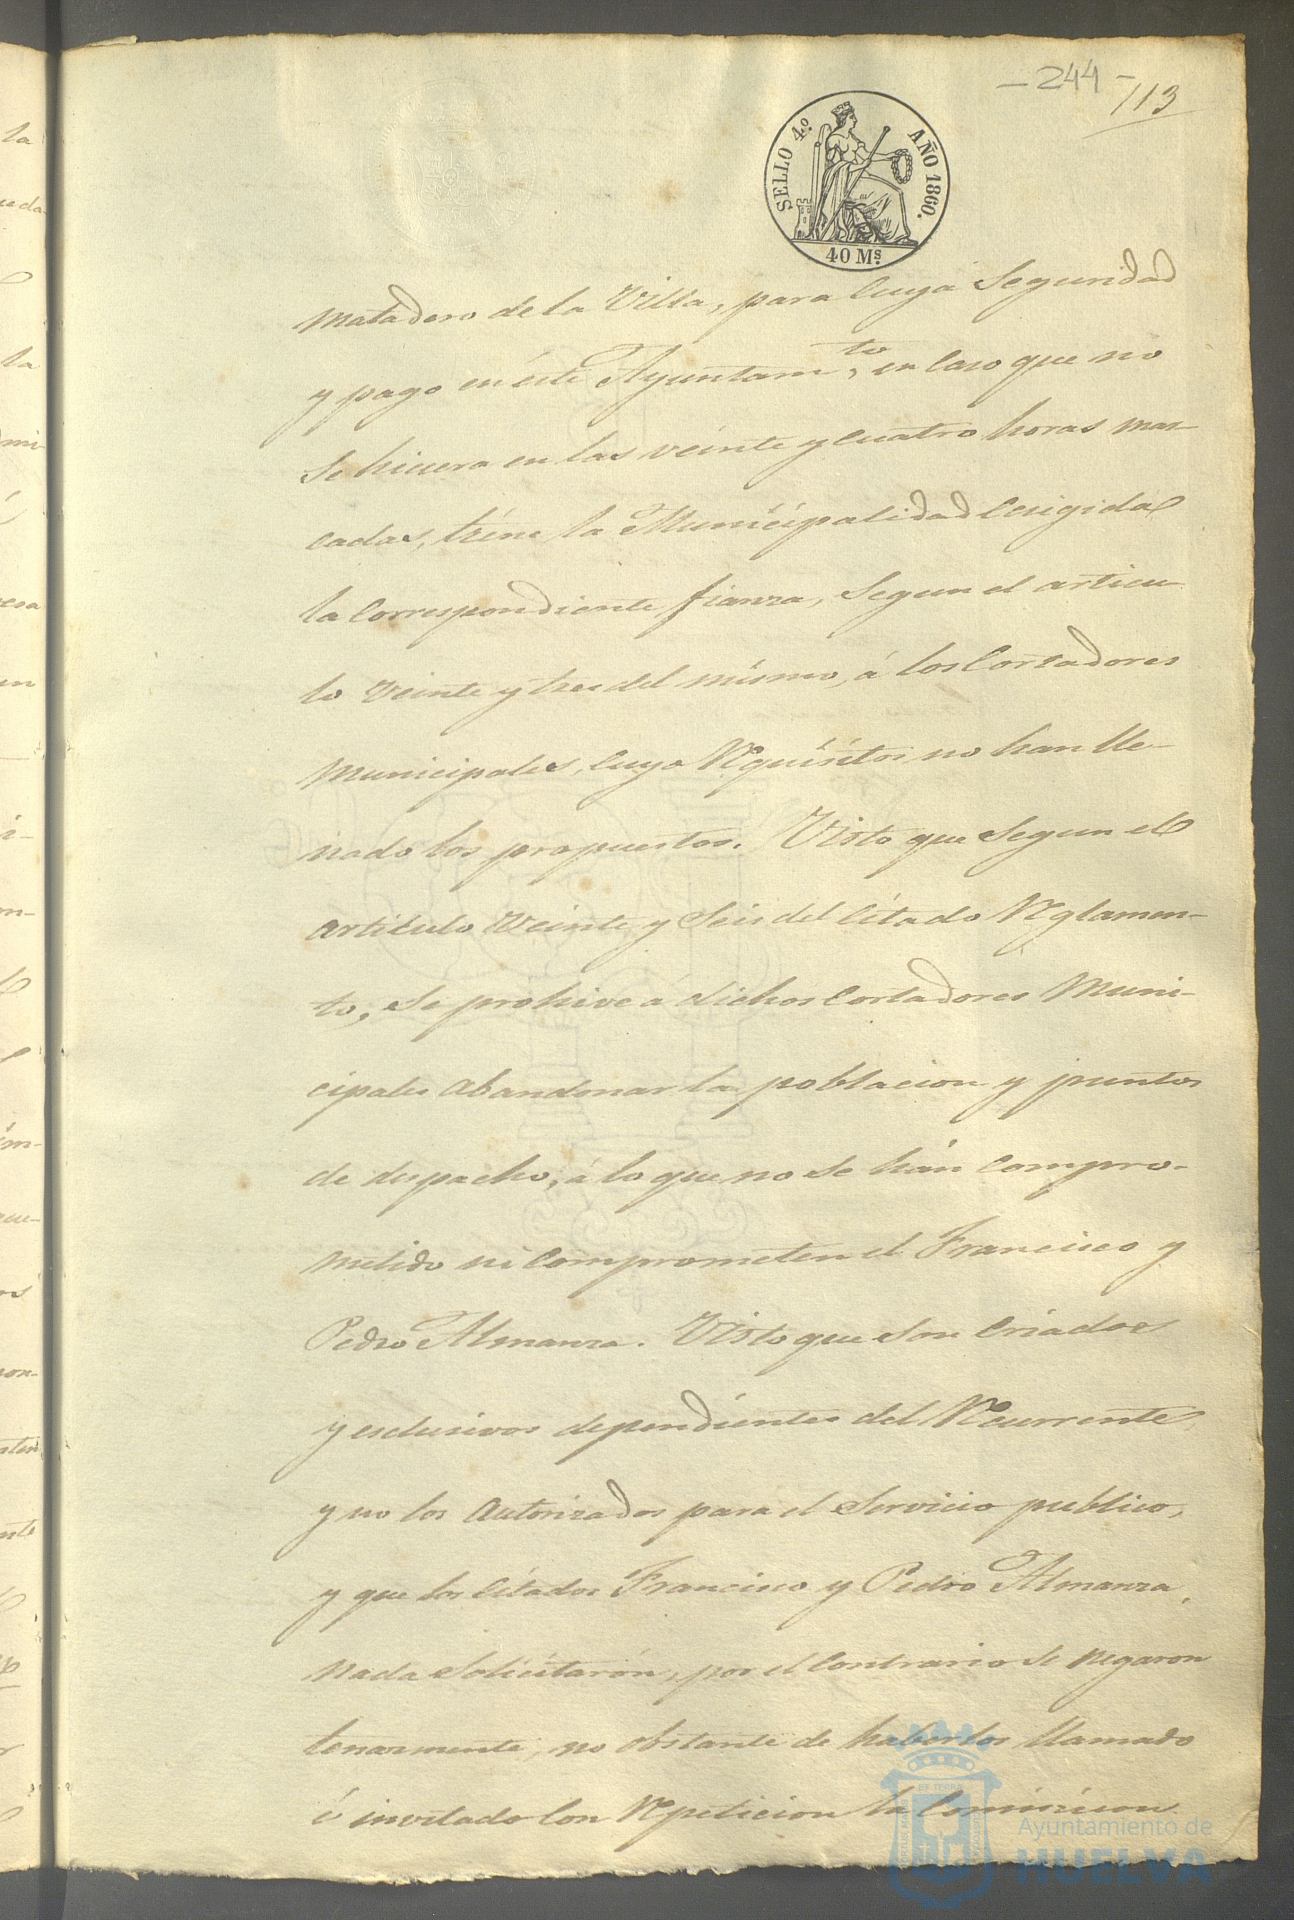 - 244 -
113
SELLO 4.º AÑO 1860.
40 Ms.
matadero de la Villa, para cuya seguridad
y pago en éste Ayuntam.to, en caso que no
se hiciera en las veinte y cuatro horas mar-
cadas, tiene la Municipalidad ecsigida
la correspondiente fianza, segun el articu-
lo veinte y tres del mismo, á los Cortadores
Municipales, cuyo Requisitos no han lle-
nado los propuestos. Visto que segun el
articulo veinte y seis del citado Reglamen-
to, se prohive á dichos Cortadores Muni-
cipales abandonar la poblacion y puntos
de despacho, á lo que no se hán compro-
metido ni comprometen el Francisco y
Pedro Almanza. Visto que son criados
y esclusivos dependientes del Recurrente,
y no los autorizados para el servicio publico,
y que los citados Francisco y Pedro Almanza,
nada solicitarón, por el contrario se negaron
tenazmente, no obstante de haberlos llamado
é invitado con Repeticion la Comision
Ayuntamiento de
HUELVA